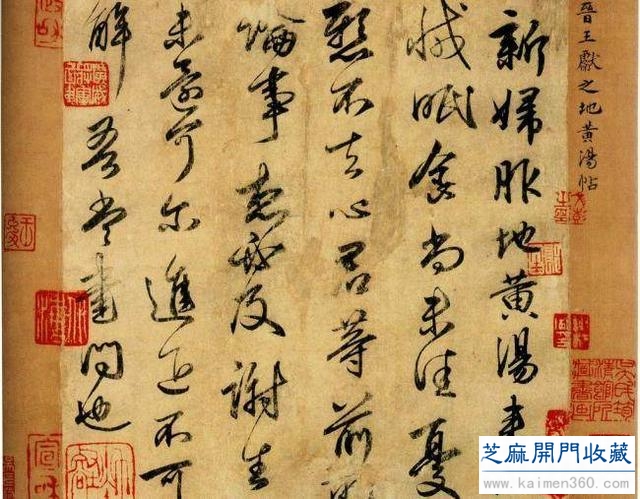 晉王獻之地黄湯帖
新婦服地黄湯来
減眠食尚未佳憂
懸不去心君等前所
論事想必及謝生
未還何尔進退不可
解吾當書問也
芝麻開門收藏
www.kaimen360.com